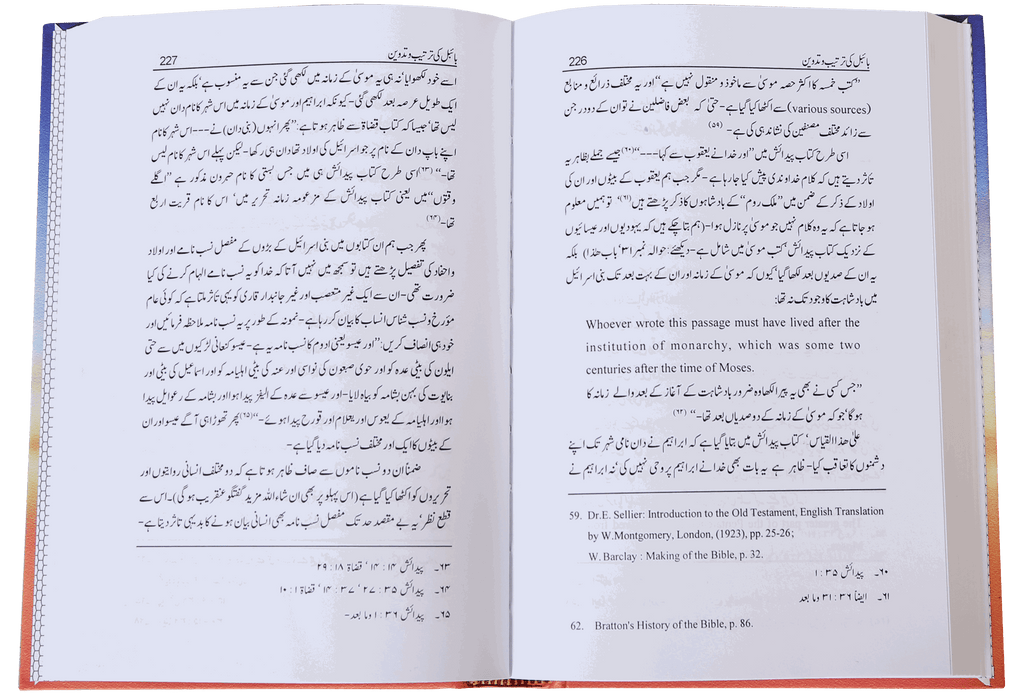 بائبل کی ترتیب و تدوین
226
”کتب خمسہ کا اکثر حصہ موسیٰ سے ماخوذ و منقول نہیں ہے“ اور یہ مختلف ذرائع و منابع
(various sources) سے اکٹھا کیا گیا ہے۔ حتیٰ کہ بعض فاضلین نے تو ان کے دو درجن
سے زائد مختلف مصنفین کی نشاندہی کی ہے۔ (۵۹)
اسی طرح کتاب پیدائش میں ”اور خدا نے یعقوب سے کہا---“(۶۰) جیسے جملے بظاہر یہ
تاثر دیتے ہیں کہ کلام خداوندی پیش کیا جا رہا ہے۔ مگر جب ہم یعقوب کے بیٹوں اور ان کی
اولاد کے ذکر کے ضمن میں ”ملک روم“ کے بادشاہوں کا ذکر پڑھتے ہیں(۶۱)‘ تو ہمیں معلوم
ہو جاتا ہے کہ یہ وہ کلام نہیں جو موسیٰ پر نازل ہوا۔ (ہم بتا چکے ہیں کہ یہودیوں اور عیسائیوں
کے نزدیک کتاب پیدائش‘ کتب موسیٰ میں شامل ہے۔ دیکھئے: حوالہ نمبر ۳۱‘ باب ھذا) بلکہ
یہ ان کے صدیوں بعد لکھا گیا‘ کیوں کہ موسیٰ کے زمانہ اور ان کے بہت بعد تک بنی اسرائیل
میں بادشاہت کا وجود تک نہ تھا:
Whoever wrote this passage must have lived after the
institution of monarchy, which was some two
centuries after the time of Moses.
”جس کسی نے بھی یہ پیرا لکھا وہ ضرور بادشاہت کے آغاز کے بعد والے زمانہ کا
ہو گا‘ جو کہ موسیٰ کے زمانہ کے دو صدیاں بعد تھا۔“ (۶۲)
علیٰ ھذا القیاس‘ کتاب پیدائش میں بتایا گیا ہے کہ ابراہیم نے دان نامی شہر تک اپنے
دشمنوں کا تعاقب کیا۔ ظاہر ہے یہ بات بھی خدا نے ابراہیم پر وحی نہیں کی‘ نہ ابراہیم نے
59. Dr.E. Sellier: Introduction to the Old Testament, English Translation
by W.Montgomery, London, (1923), pp. 25-26;
W. Barclay : Making of the Bible, p. 32.
۶۰۔ پیدائش ۳۵ : ۱
۶۱۔ ایضاً ۳۶ : ۳۱ وما بعد
62. Bratton's History of the Bible, p. 86.
بائبل کی ترتیب و تدوین
227
اسے خود لکھوایا‘ نہ ہی یہ موسیٰ کے زمانہ میں لکھی گئی جن سے یہ منسوب ہے‘ بلکہ یہ ان کے
ایک طویل عرصہ بعد لکھی گئی۔ کیونکہ ابراہیم اور موسیٰ کے زمانہ میں اس شہر کا نام دان نہیں
لیس تھا‘ جیسا کہ کتاب قضاۃ سے ظاہر ہوتا ہے: ”پھر انہوں (بنی دان) نے --- اس شہر کا نام
اپنے باپ دان کے نام پر جو اسرائیل کی اولاد تھا دان ہی رکھا۔ لیکن پہلے اس شہر کا نام لیس
تھا۔“ (۶۳) اسی طرح کتاب پیدائش ہی میں جس بستی کا نام حبرون مذکور ہے ”اگلے
وقتوں“ میں یعنی کتاب پیدائش کے مزعومہ زمانہ تحریر میں‘ اس کا نام قریت اربع
تھا۔ (۶۴)
پھر جب ہم ان کتابوں میں بنی اسرائیل کے بڑوں کے مفصل نسب نامے اور اولاد
و احفاد کی تفصیل پڑھتے ہیں تو سمجھ میں نہیں آتا کہ خدا کو یہ نسب نامے الہام کرنے کی کیا
ضرورت تھی۔ ان سے ایک غیر متعصب اور غیر جانبدار قاری کو یہی تاثر ملتا ہے کہ کوئی عام
مورخ و نسب شناس انساب کا بیان کر رہا ہے۔ نمونہ کے طور پر یہ نسب نامہ ملاحظہ فرمائیں اور
خود ہی انصاف کریں: ”اور عیسو یعنی ادوم کا نسب نامہ یہ ہے۔ عیسو کنعانی لڑکیوں میں سے حتی
ایلون کی بیٹی عدہ کو اور حوی صبعون کی نواسی اور عنہ کی بیٹی اہلیبامہ کو اور اسماعیل کی بیٹی اور
نبایوت کی بہن بشامہ کو بیاہ لایا۔ اور عیسو سے عدہ کے الیفز پیدا ہوا اور بشامہ کے رعوایل پیدا
ہوا اور اہلیبامہ کے یعوس اور یعلام اور قورح پیدا ہوئے۔“(۶۵) پھر تھوڑا ہی آگے عیسو اور ان
کے بیٹوں کا ایک اور مختلف نسب نامہ دیا گیا ہے۔
ضمناً ان دو نسب ناموں سے صاف ظاہر ہوتا ہے کہ دو مختلف انسانی روایتوں اور
تحریروں کو اکٹھا کیا گیا ہے (اس پہلو پر بھی ان شاء اللہ مزید گفتگو عنقریب ہو گی)۔ اس سے
قطع نظر‘ یہ بے مقصد حد تک مفصل نسب نامہ بھی انسانی بیان ہونے کا بدیہی تاثر دیتا ہے۔
۶۳۔ پیدائش ۱۴ : ۱۴‘ قضاۃ ۱۸ : ۲۹
۶۴۔ پیدائش ۳۵ : ۲۷‘ ۳۷ : ۱۴‘ قضاۃ ۱ : ۱۰
۶۵۔ پیدائش ۳۶ : ۱ وما بعد۔